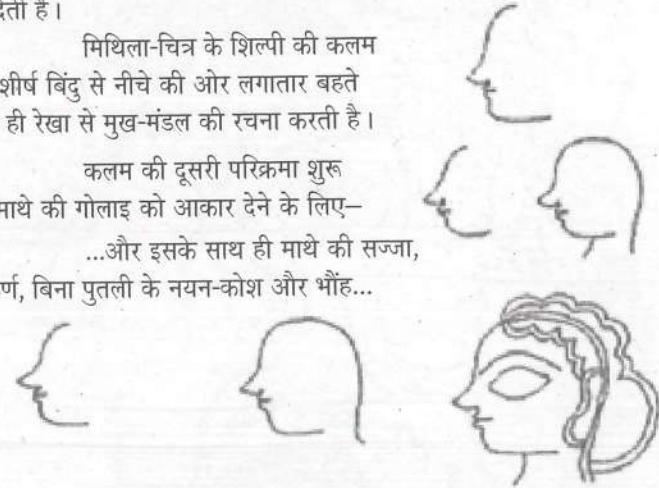 देती है।
मिथिला-चित्र के शिल्पी की कलम
शीर्ष बिंदु से नीचे की ओर लगातार बहते
ही रेखा से मुख-मंडल की रचना करती है।
कलम की दूसरी परिक्रमा शुरू
माथे की गोलाइ को आकार देने के लिए–
...और इसके साथ ही माथे की सज्जा,
र्ण, बिना पुतली के नयन-कोश और भौंह...